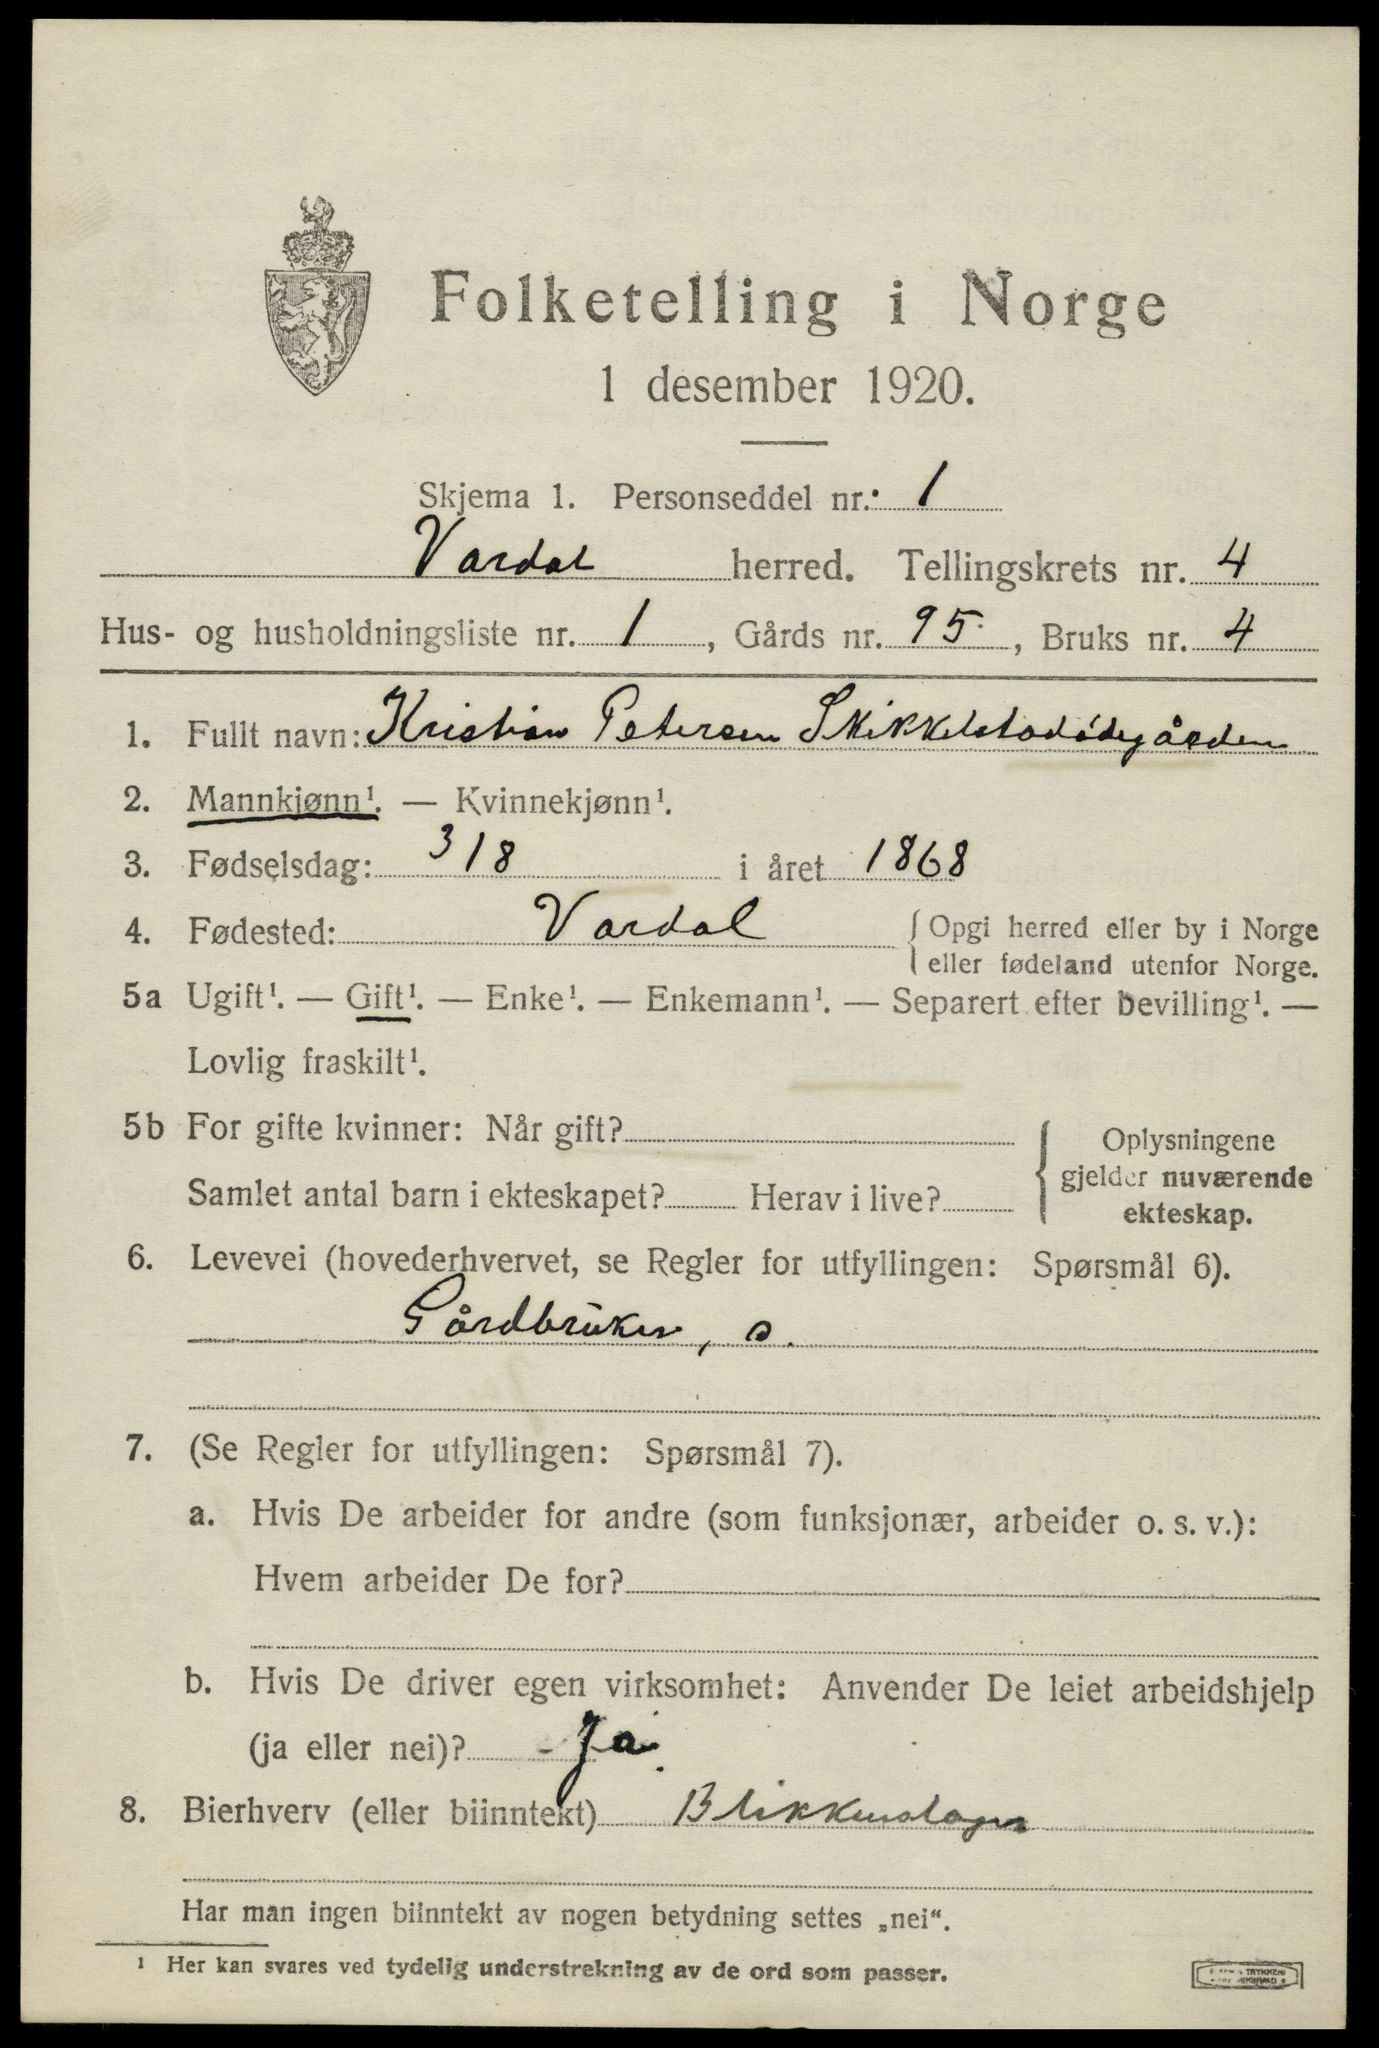 Folketelling i Norge
1 desember 1920.
Skjema 1. Personseddel nr. 1
Vardal herred. Tellingskrets nr. 4
Hus- og husholdningsliste nr. 1, Gårds nr. 95, Bruks nr. 4
1. Fullt navn: Kristian Petersen Skikkelstadødegården
2. Mannkjønn¹. — Kvinnekjønn¹.
3. Fødselsdag: 3 18 i året 1868
4. Fødested: Vardal { Opgi herred eller by i Norge
eller fødeland utenfor Norge.
5a Ugift¹. — Gift¹. — Enke¹. — Enkemann¹. — Separert efter bevilling¹. —
Lovlig fraskilt¹.
5b For gifte kvinner: Når gift?
Samlet antal barn i ekteskapet? Herav i live?
Oplysningene
gjelder nuværende
ekteskap.
6. Levevei (hovederhvervet, se Regler for utfyllingen: Spørsmål 6).
Gårdbruker, s.
7. (Se Regler for utfyllingen: Spørsmål 7).
a. Hvis De arbeider for andre (som funksjonær, arbeider o. s. v.):
Hvem arbeider De for?
b. Hvis De driver egen virksomhet: Anvender De leiet arbeidshjelp
(ja eller nei)? Ja.
8. Bierhverv (eller biinntekt) Blikkenslager
Har man ingen biinntekt av nogen betydning settes „nei“.
¹ Her kan svares ved tydelig understrekning av de ord som passer.